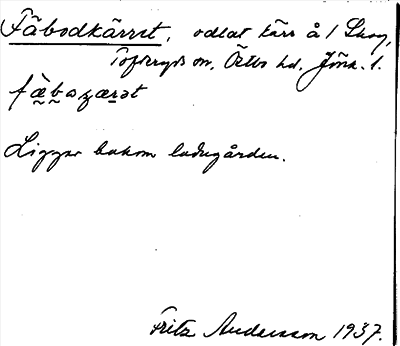 Fäbodkärret, odlat kärr å 1 Skog,
Tofteryds sn, Östbo hd. Jönk. l.
Ligger bakom ladugården.
Fritz Andersson 1937.